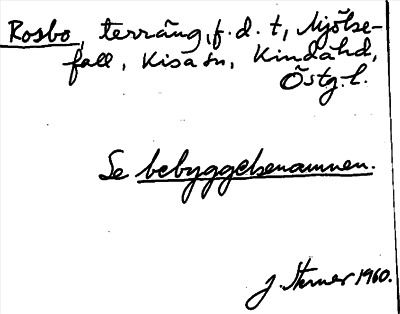 Rosbo, terräng, f. d. t, Mjölse-
fall, Kisa sn, Kinda hd,
Östg. l.
Se bebyggelsenamnen.
J. Sterner 1960.